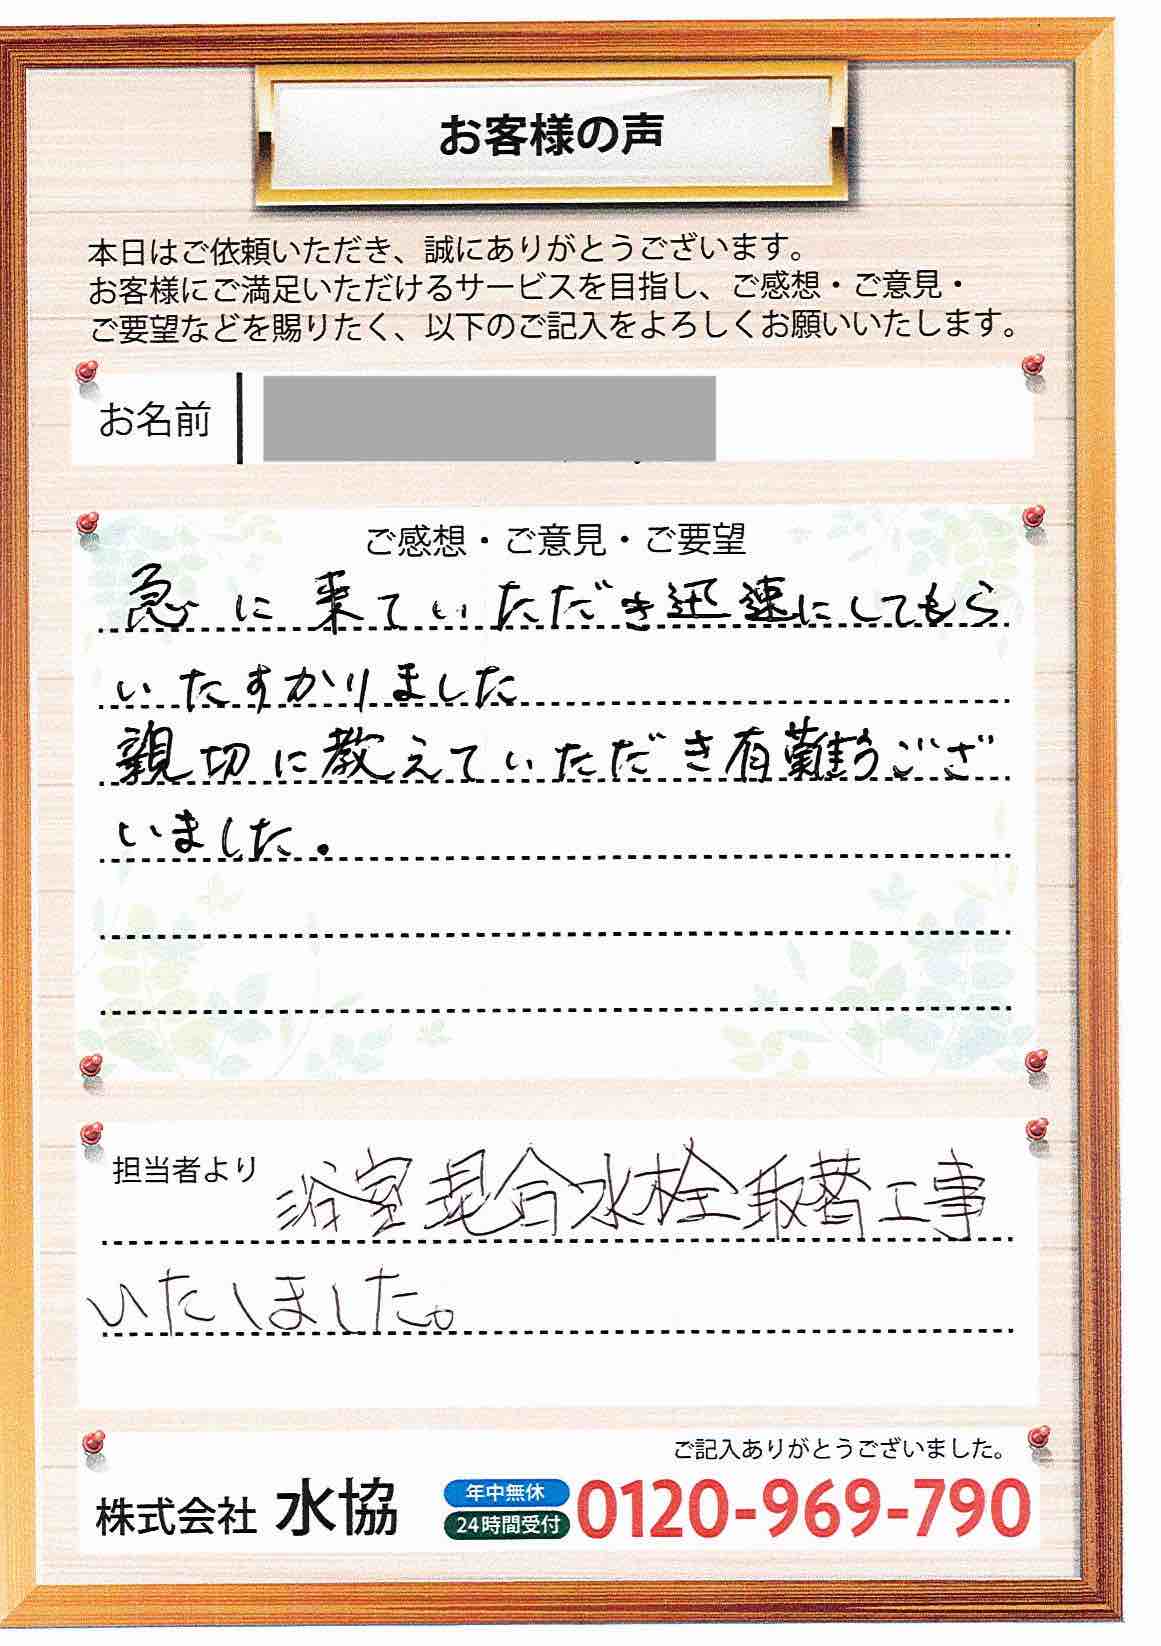 お客様の声
本日はご依頼いただき、誠にありがとうございます。
お客様にご満足いただけるサービスを目指し、ご感想・ご意見・
ご要望などを賜りたく、以下のご記入をよろしくお願いいたします。
お名前
ご感想・ご意見・ご要望
急に来ていただき迅速にしてもら
いたすかりました
親切に教えていただき有難うござ
いました。
担当者より 浴室混合水栓取替工事
いたしました。
ご記入ありがとうございました。
株式会社 水協 年中無休 24時間受付 0120-969-790